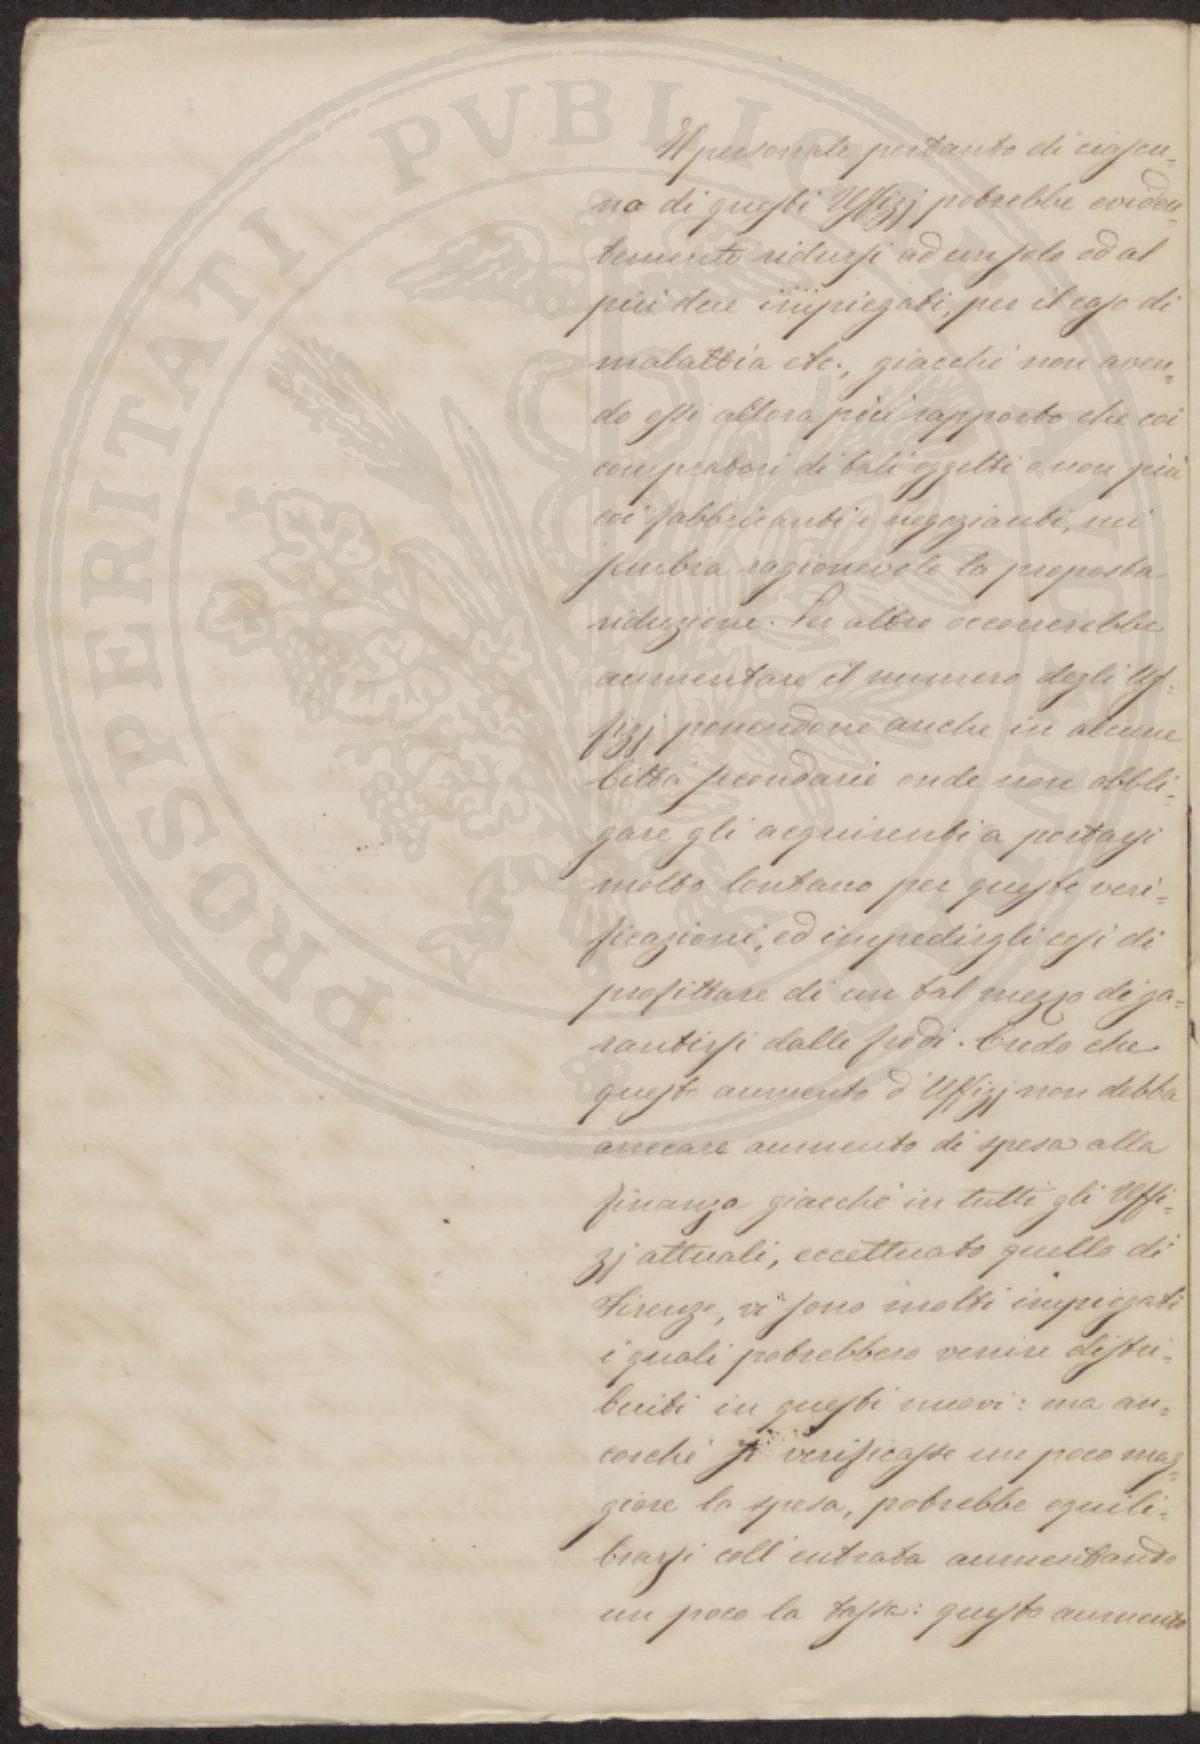 Il personale pertanto di ciascu=
no di questi Uffizj potrebbe eviden=
temente ridursi ad un solo od al
più due impiegati, per il caso di
malattia etc., giacché non aven=
do essi allora più rapporto che coi
compratori di tali oggetti e non più
coi fabbricanti e negozianti, mi
sembra ragionevole la proposta
riduzione. Per altro occorrerebbe
aumentare il numero degli Uf=
fizj ponendone anche in alcune
Città secondarie onde non obbli=
gare gli acquirenti a portarsi
molto lontano per queste veri=
ficazioni, ed impedirgli così di
profittare di un tal mezzo di ga=
rantirsi dalle frodi. Credo che
questo aumento d'Uffizj non debba
arrecare aumento di spesa alla
finanza giacché in tutti gli Uffi=
zj attuali, eccettuato quello di
Firenze, vi sono molti impiegati
i quali potrebbero venire distri=
buiti in questi nuovi: ma an=
corché si verificasse un poco mag=
giore la spesa, potrebbe equili=
brarsi coll'entrata aumentando
un poco la tassa: questo aumento
PROSPERITATI PVBLICAE AVGENDAE